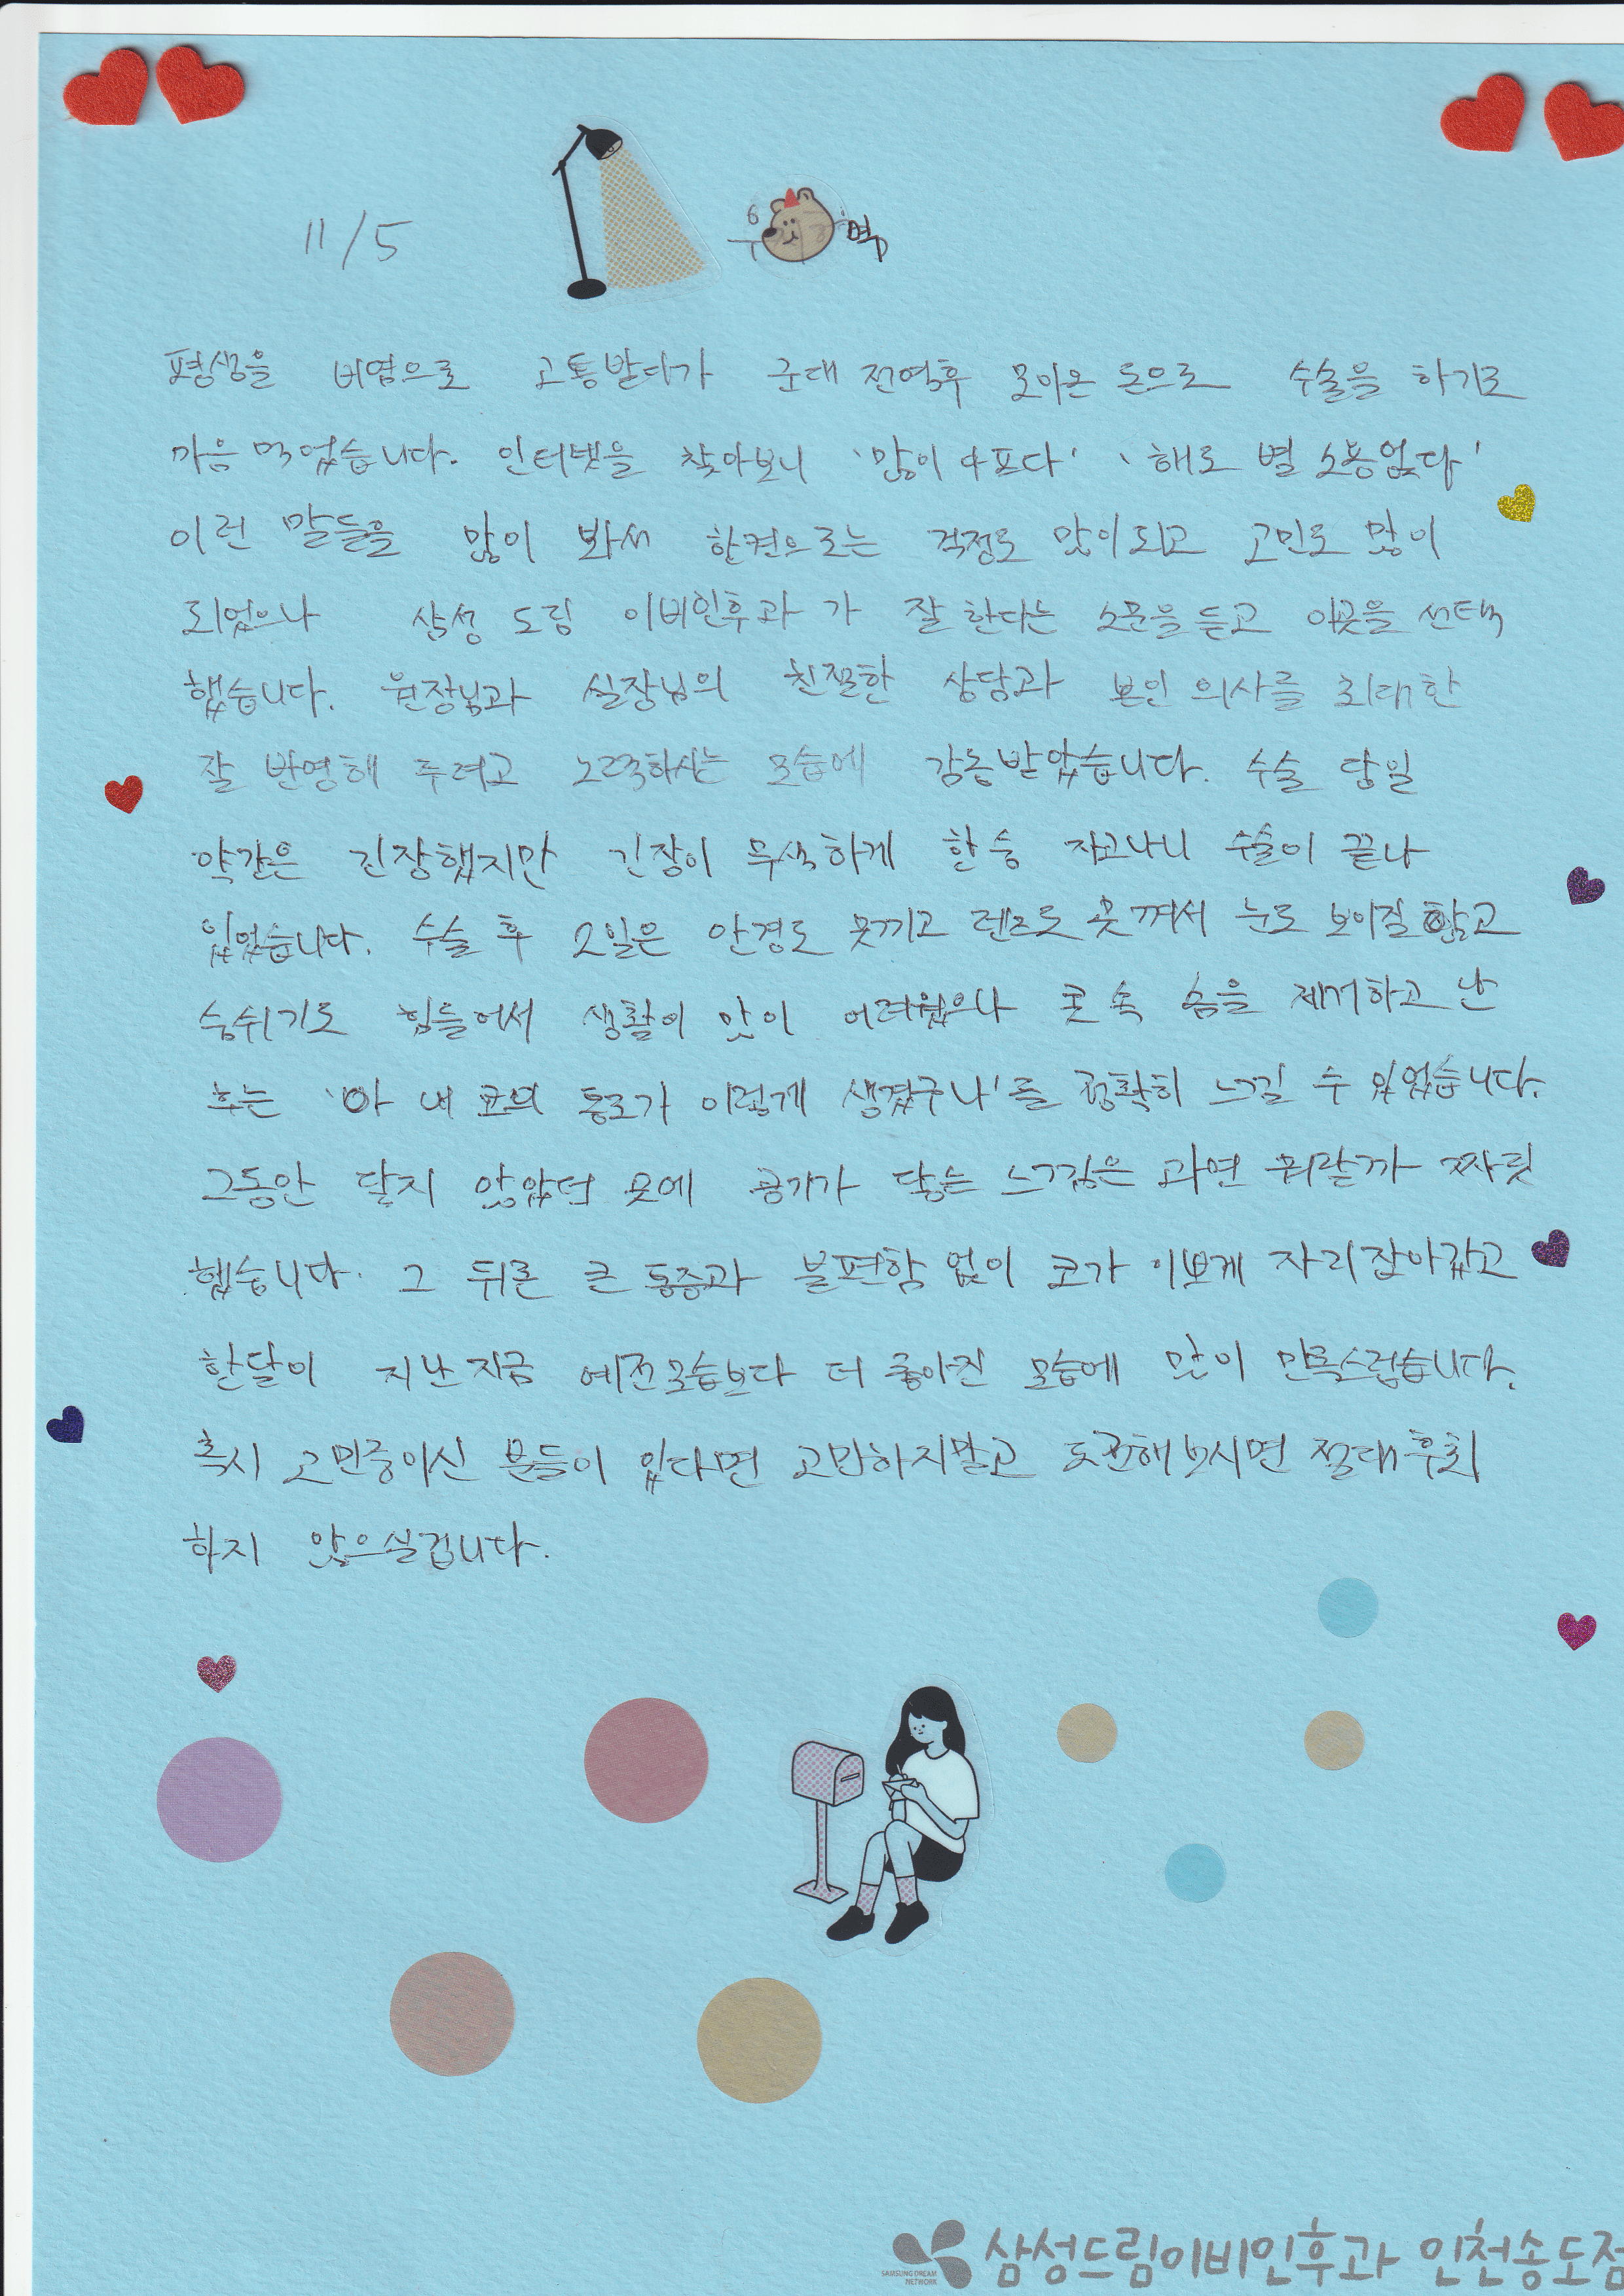 11/5
평생을 비염으로 고통받다가 군대 전역후 모아온 돈으로 수술을 하기로
마음 먹었습니다. 인터넷을 찾아보니 '많이 아프다' '해로 별 소용없다'
이런 말들을 많이 봐서 한켠으로는 걱정도 많이되고 고민도 많이
되었으나 삼성 드림 이비인후과 가 잘 한다는 소문을 듣고 이곳을 선택
했습니다. 원장님과 실장님의 친절한 상담과 본인 의사를 최대한
잘 반영해 주려고 노력하시는 모습에 감동받았습니다. 수술 당일
약간은 긴장했지만 긴장이 무색하게 한숨 자고나니 수술이 끝나
있었습니다. 수술 후 2일은 안경도 못끼고 렌즈도 못껴서 눈도 보이질 않고
숨쉬기도 힘들어서 생활이 많이 어려웠으나 콧 속 솜을 제거하고 난
후는 '아 내 코의 통로가 이렇게 생겼구나'를 정확히 느낄 수 있었습니다.
그동안 닿지 않았던 곳에 공기가 닿는 느낌은 과연 뭐랄까 짜릿
했습니다. 그 뒤론 큰 통증과 불편함 없이 코가 이쁘게 자리잡아갔고
한달이 지난 지금 예전모습보다 더 좋아진 모습에 많이 만족스럽습니다.
혹시 고민중이신 분들이 있다면 고민하지말고 도전해보시면 절대 후회
하지 않으실겁니다.
SAMSUNG DREAM
NETWORK
삼성드림이비인후과 인천송도점